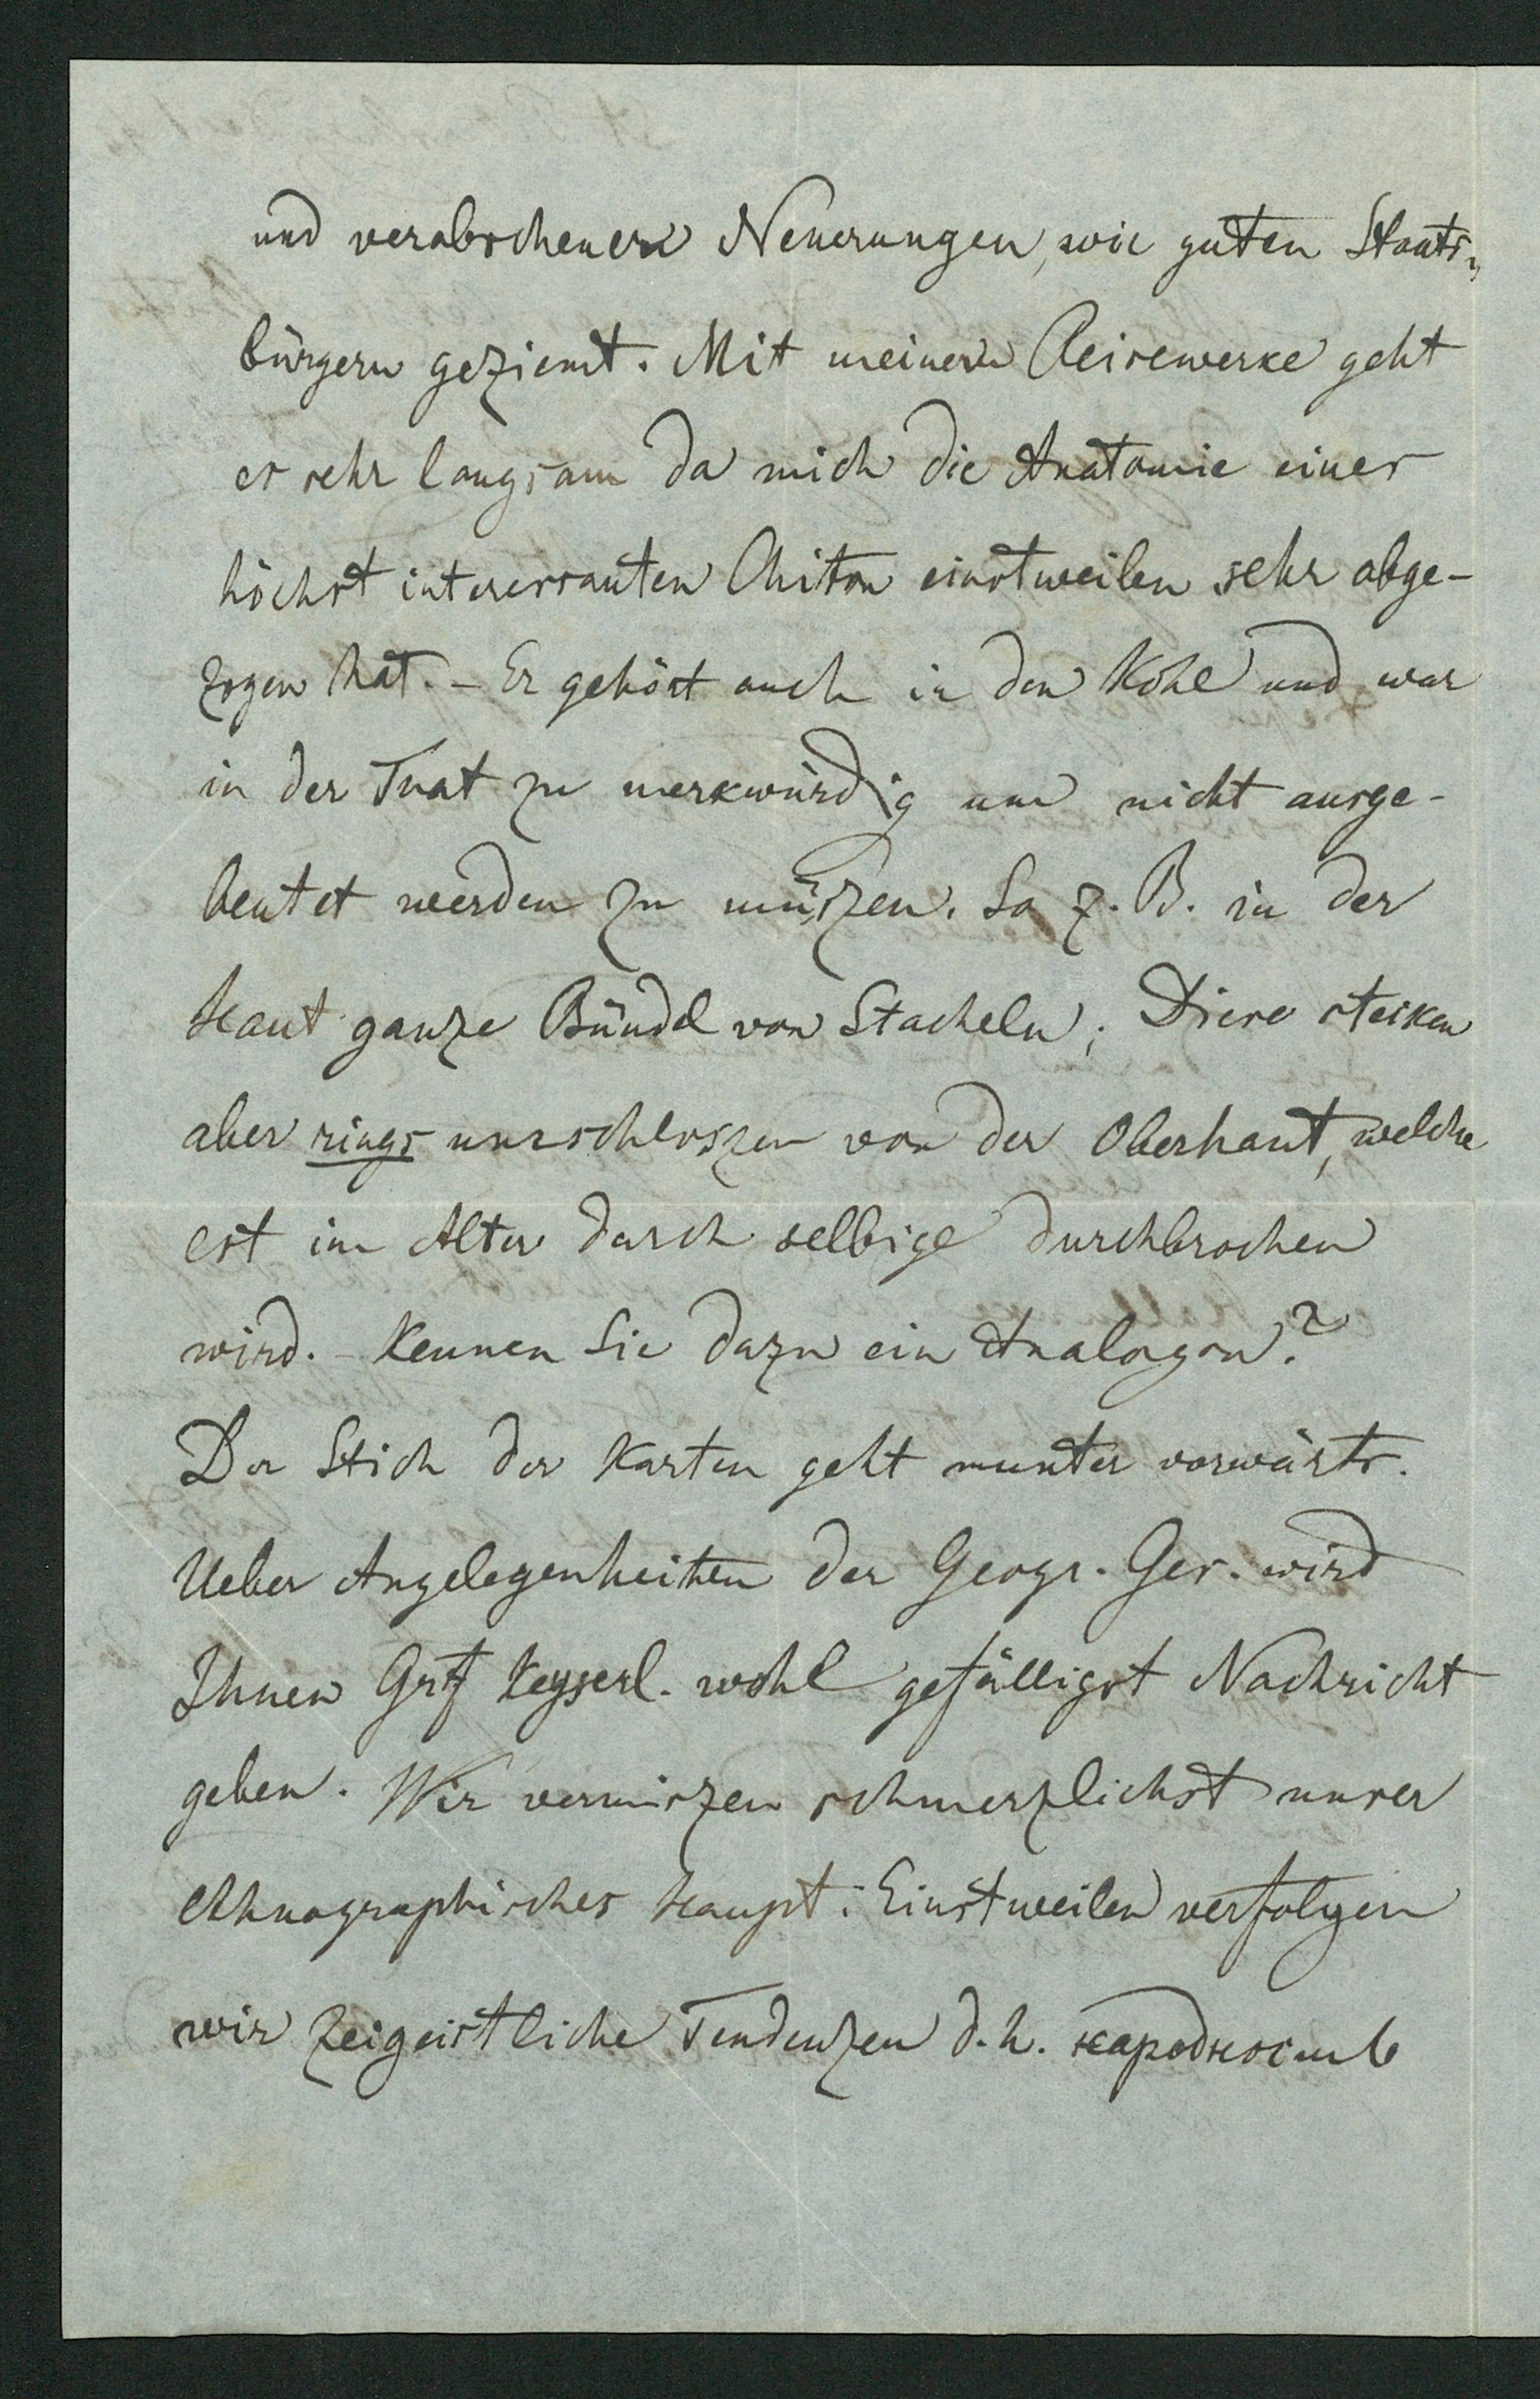 und verabscheuen Neuerungen, wie guten Staats-
bürgern geziemt. Mit meinem Reisewerke geht
es sehr langsam da mich die Anatomie eines
höchst interessanten Chiton einstweilen sehr abge-
zogen hat. – Er gehört auch in den Kohl und war
in der That zu merkwürdig um nicht ausge-
beutet werden zu müszen. So z. B. in der
Haut ganze Bündel von Stacheln; Diese steken
aber rings umschloszen von der Oberhaut, welche
erst im Alter durch selbige durchbrochen
wird. – Kennen Sie dazu ein Analogon?
Der Stich der Karten geht munter vorwärts.
Ueber Angelegenheiten der Geogr. Ges. wird
Ihnen Grf Keyserl. wohl gefälligst Nachricht
geben. Wir vermiszen schmerzlichst unser
ethnographisches Haupt. Einstweilen verfolgen
wir zeigeistliche Tendenzen d. h. народность